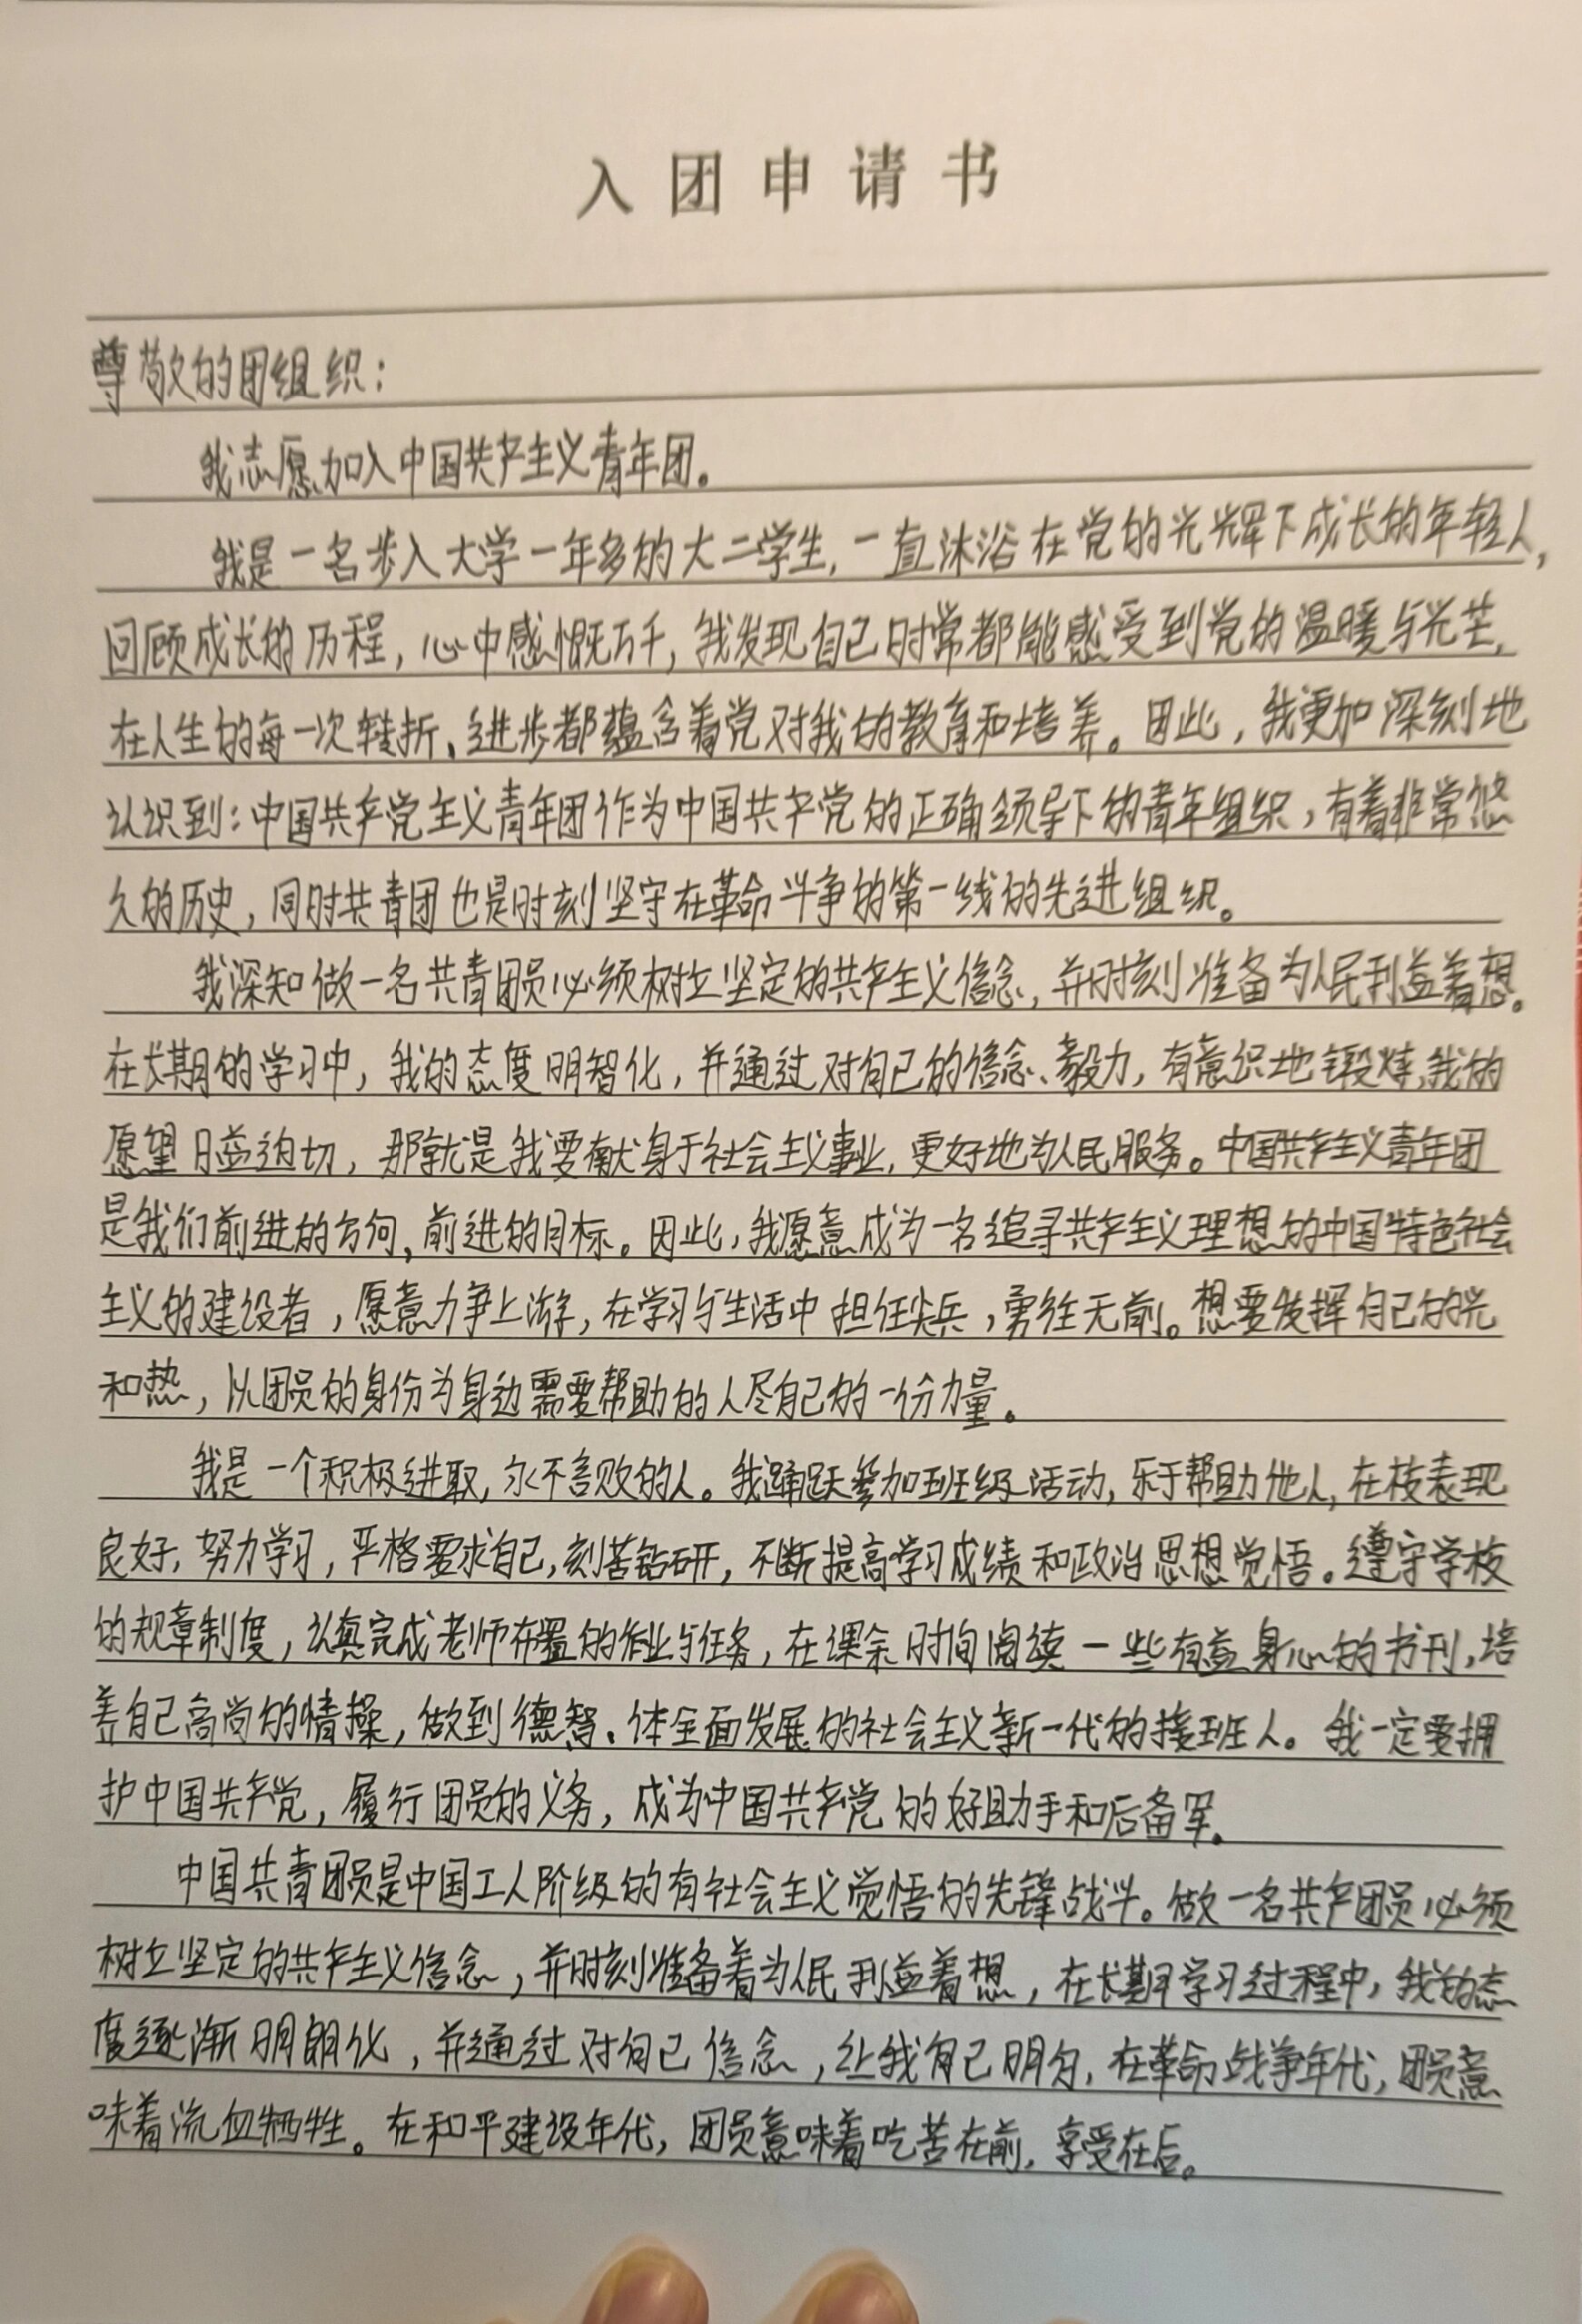 入团申请书
尊敬的团组织：
我志愿加入中国共产主义青年团。
我是一名步入大学一年多的大二学生，一直沐浴在党的光辉下成长的年轻人，
回顾成长的历程，心中感慨万千，我发现自己时常都能感受到党的温暖与光芒，
在人生的每一次转折、进步都蕴含着党对我的教育和培养。因此，我更加深刻地
认识到：中国共产党主义青年团作为中国共产党的正确领导下的青年组织，有着非常悠
久的历史，同时共青团也是时刻坚守在革命斗争的第一线的先进组织。
我深知做一名共青团员必须树立坚定的共产主义信念，并时刻准备为人民利益着想。
在长期的学习中，我的态度明智化，并通过对自己的信念、毅力，有意识地锻炼，我的
愿望日益迫切，那就是我要献身于社会主义事业，更好地为人民服务。中国共产主义青年团
是我们前进的方向，前进的目标。因此，我愿意成为一名追寻共产主义理想的中国特色社会
主义的建设者，愿意力争上游，在学习与生活中担任尖兵，勇往无前。想要发挥自己的光
和热，以团员的身份为身边需要帮助的人尽自己的一份力量。
我是一个积极进取，永不言败的人。我踊跃参加班级活动，乐于帮助他人，在校表现
良好，努力学习，严格要求自己，刻苦钻研，不断提高学习成绩和政治思想觉悟。遵守学校
的规章制度，认真完成老师布置的作业与任务，在课余时间阅读一些有益身心的书刊，培
养自己高尚的情操，做到德智、体全面发展的社会主义新一代的接班人。我一定要拥
护中国共产党，履行团员的义务，成为中国共产党的好助手和后备军。
中国共青团员是中国工人阶级的有社会主义觉悟的先锋战斗。做一名共产团员必须
树立坚定的共产主义信念，并时刻准备着为人民利益着想，在长期学习过程中，我的态
度逐渐明朗化，并通过对自己信念，让我自己明白，在革命战争年代，团员意
味着流血牺牲。在和平建设年代，团员意味着吃苦在前，享受在后。